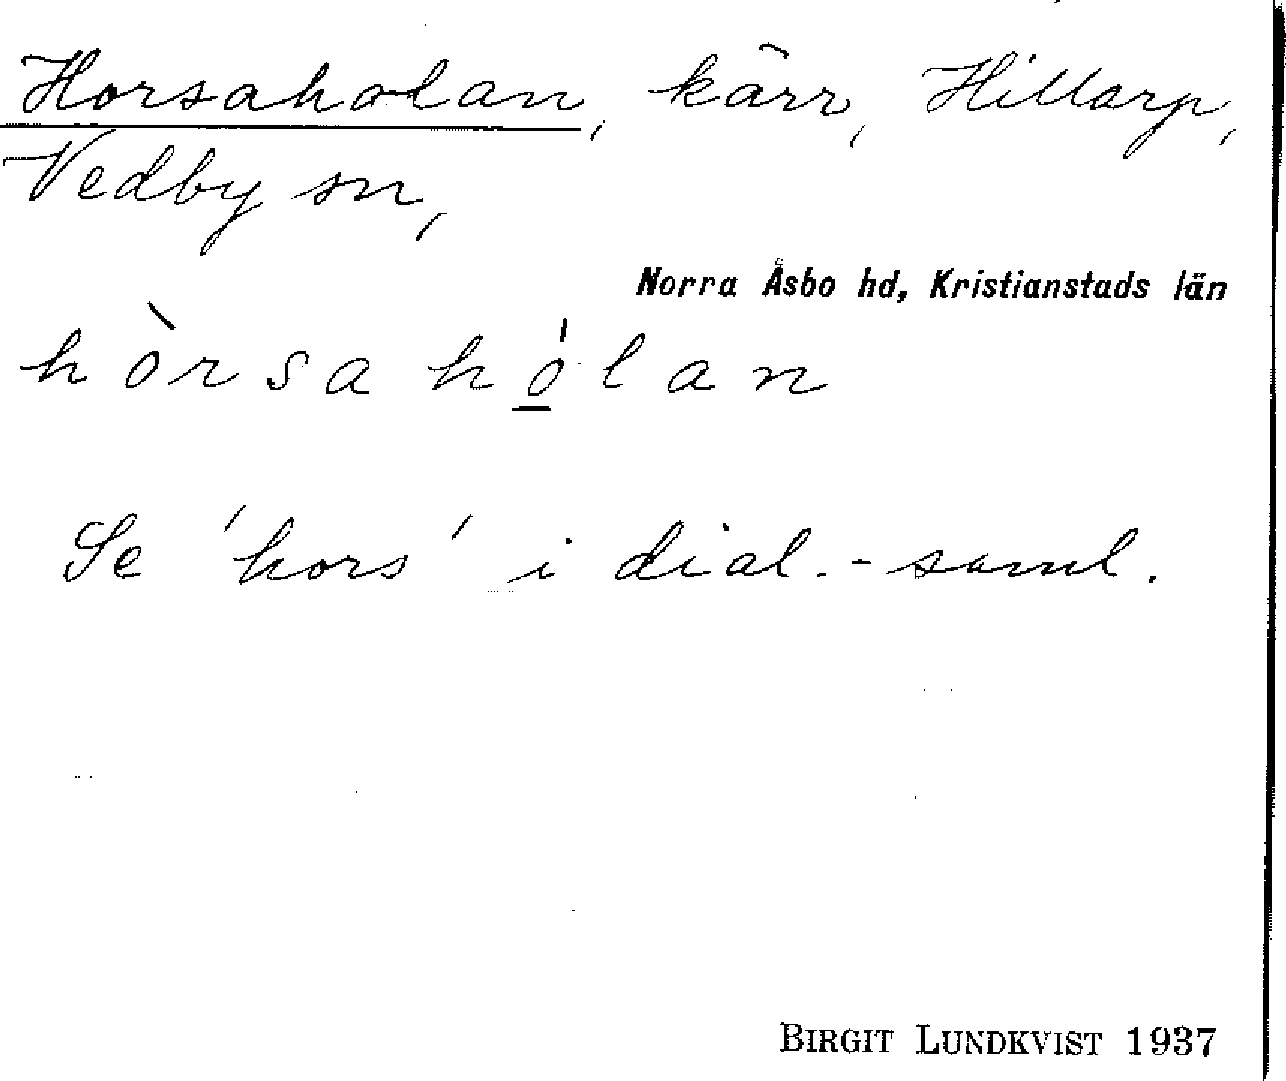 Horsaholan, kärr, Hillarp,
Vedby sn,
Norra Åsbo hd, Kristianstads län
hòrsahó̲lan
Se 'hors' i dial.-saml.
BIRGIT LUNDKVIST 1937